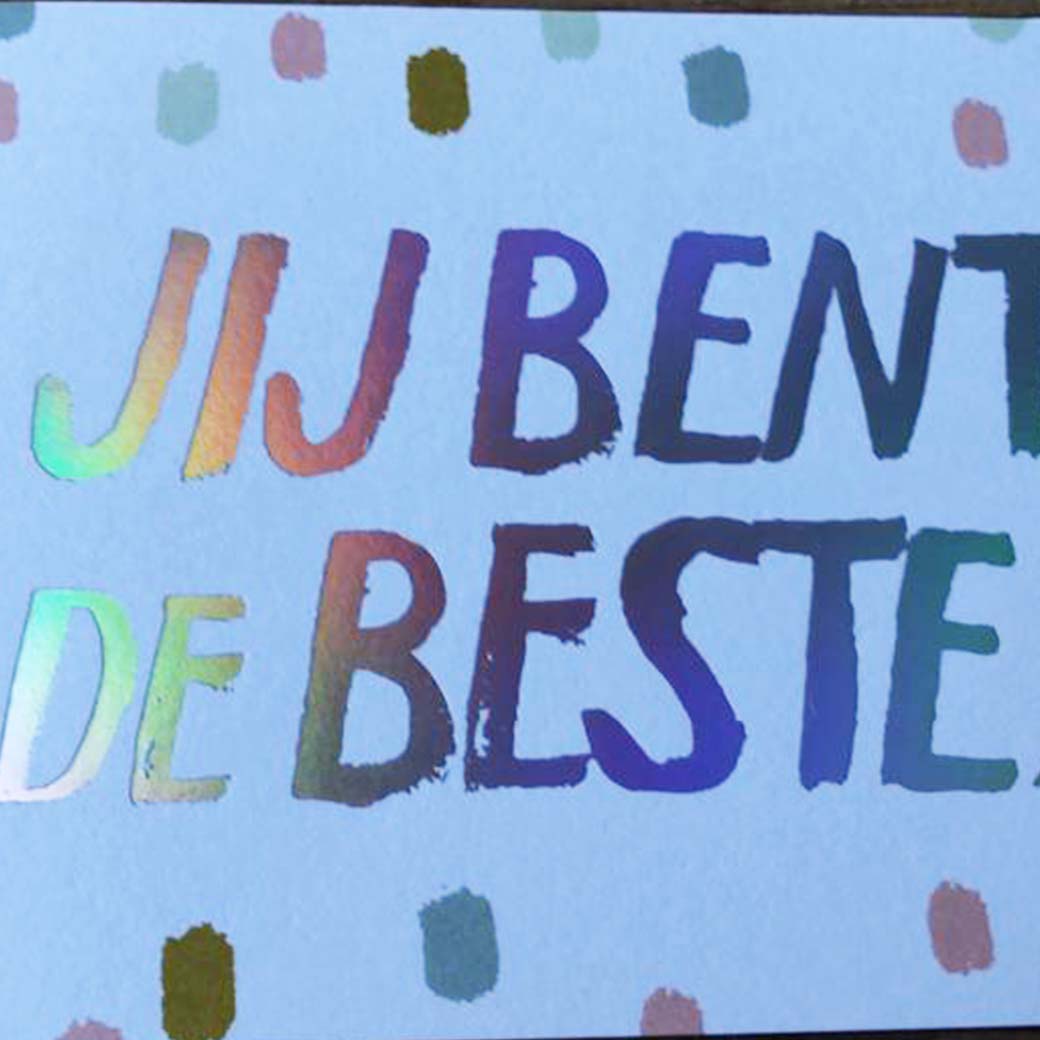 JIJ BENT
DE BESTE.